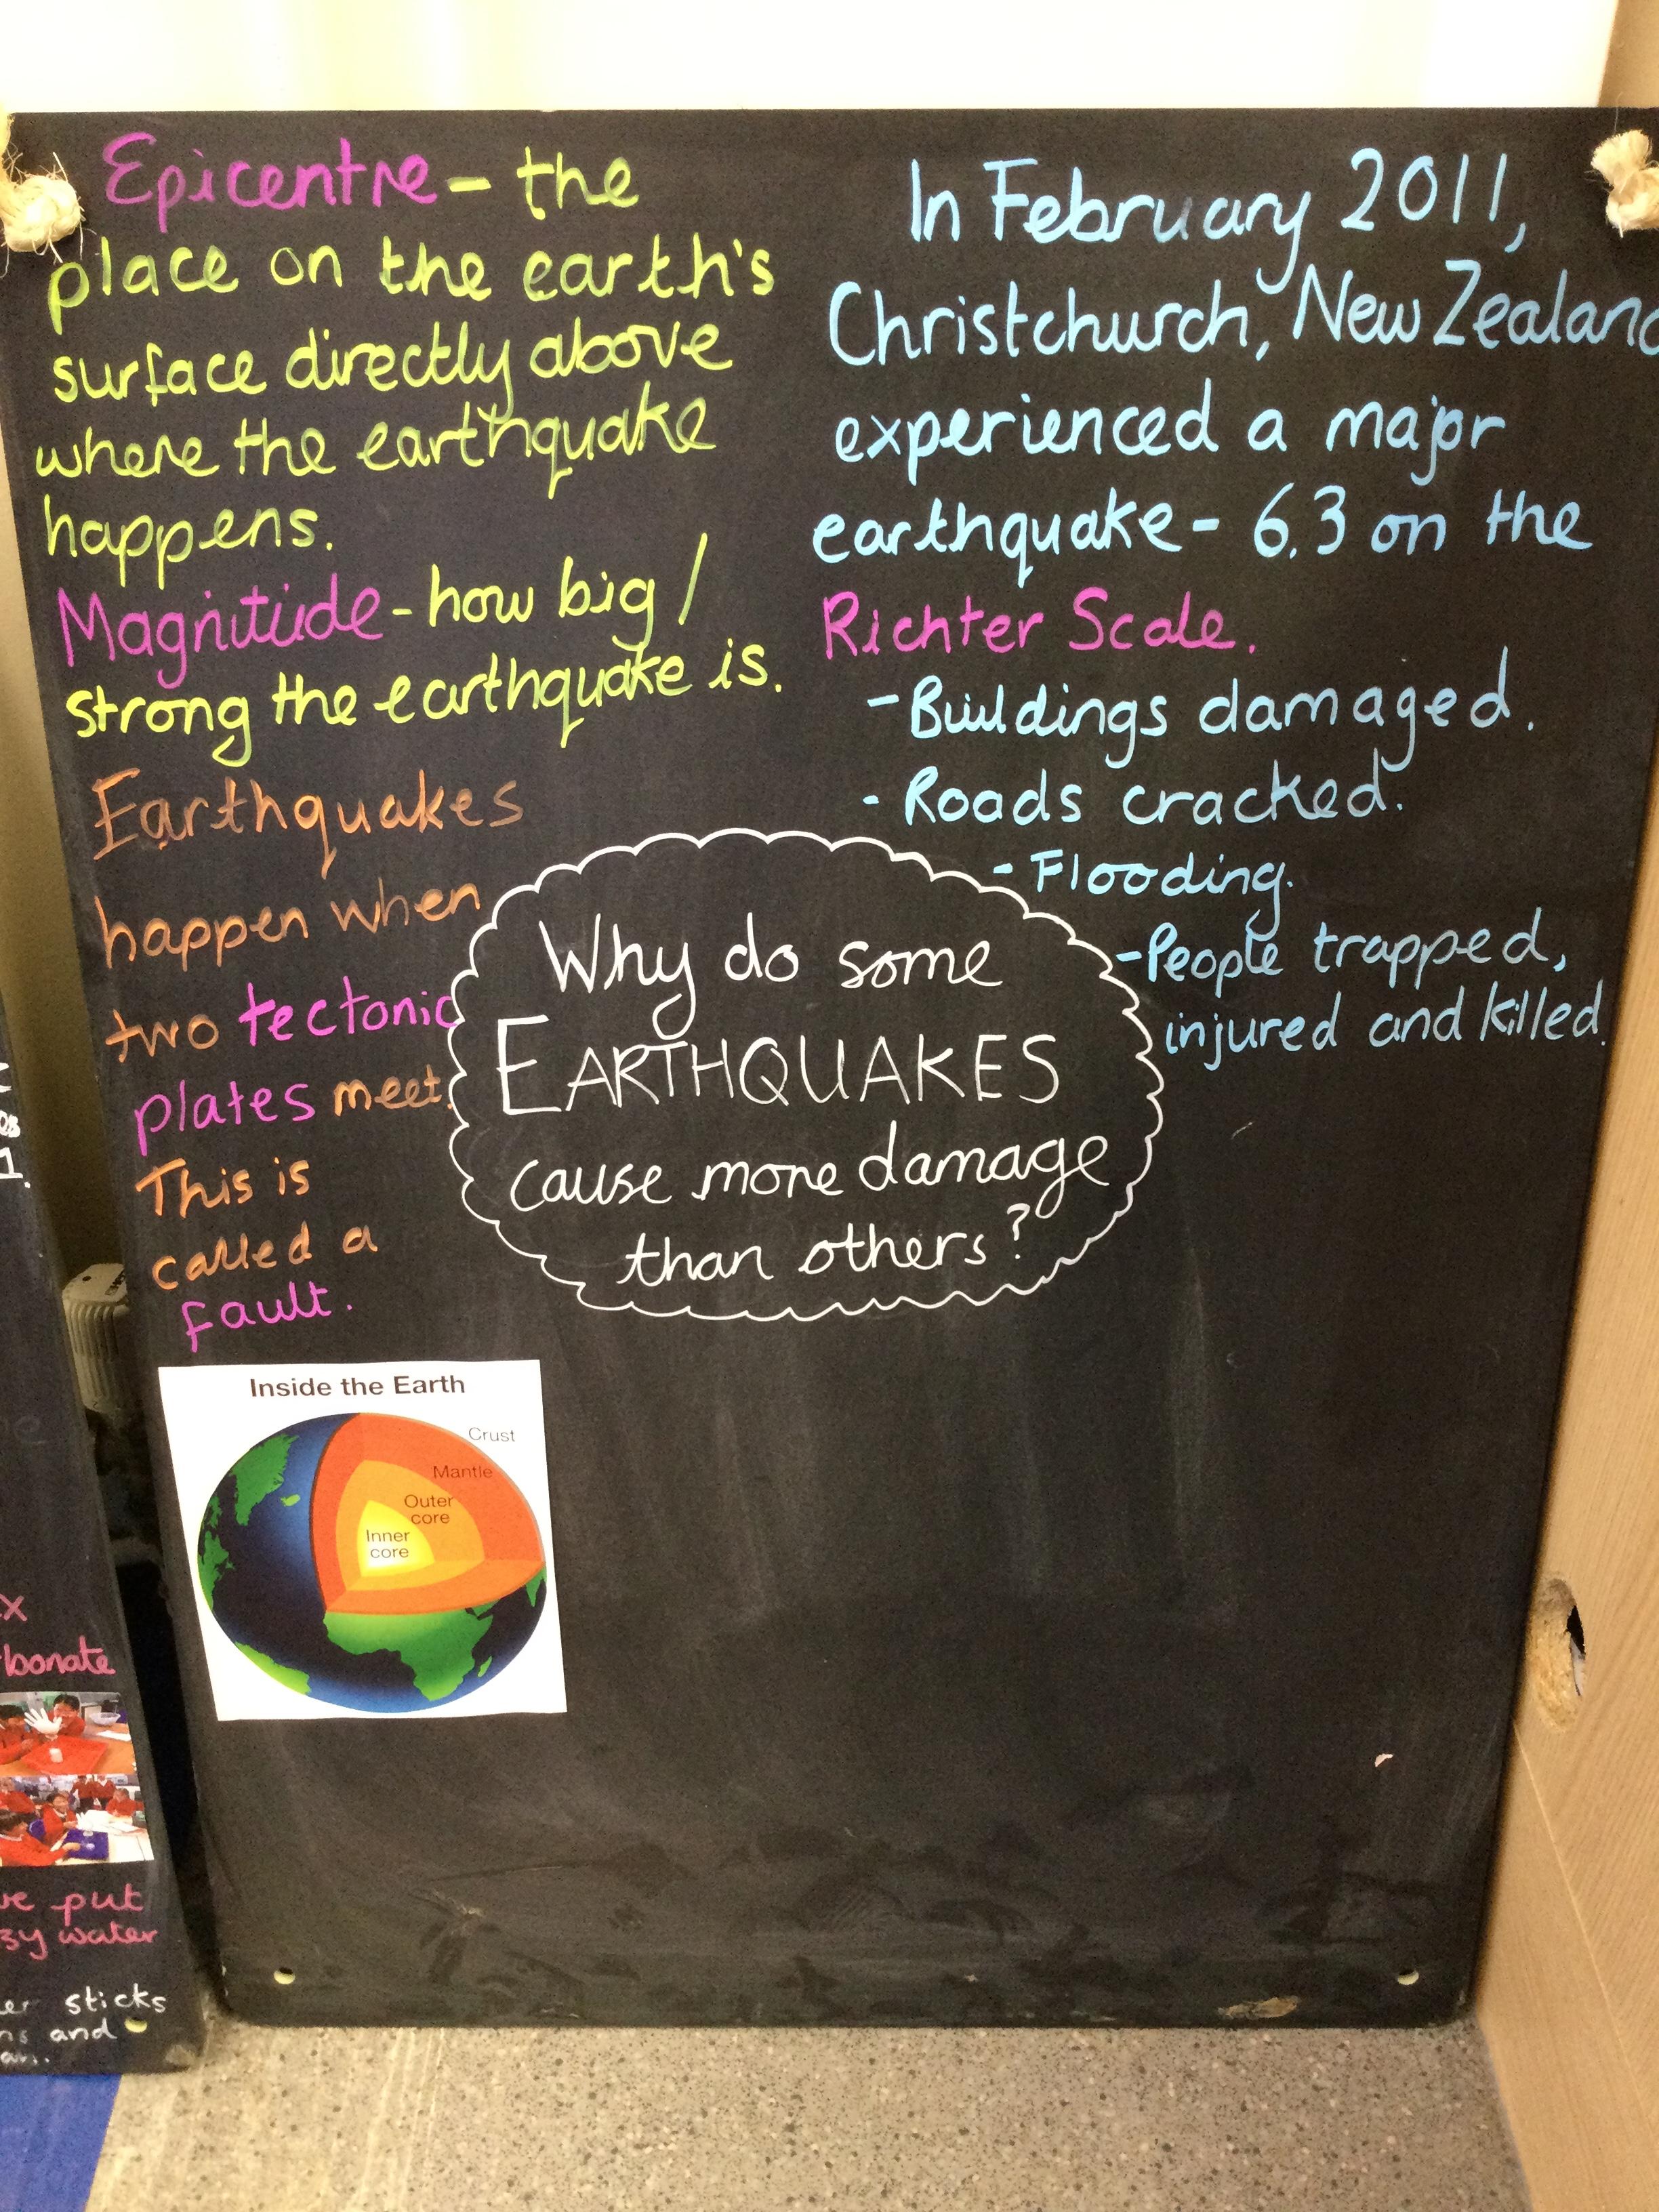 Epicentre - the
place on the earth's
surface directly above
where the earthquake
happens.
Magnitude - how big /
strong the earthquake is.
Earthquakes
happen when
two tectonic
plates meet.
This is
called a
fault.
In February 2011,
Christchurch, New Zealand
experienced a major
earthquake - 6.3 on the
Richter Scale.
- Buildings damaged.
- Roads cracked.
- Flooding.
- People trapped,
injured and killed.
Why do some
EARTHQUAKES
cause more damage
than others?
Inside the Earth
Crust
Mantle
Outer
core
Inner
core
put
water
sticks
and